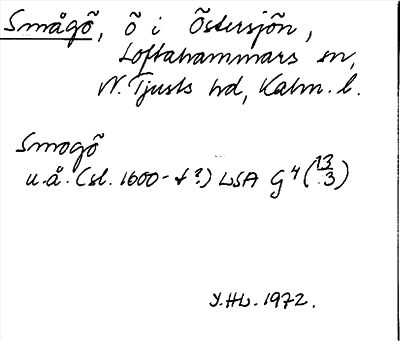 Smågö, ö i Östersjön,
Loftahammars sn,
N. Tjusts hd, Kalm. l.
Smogö
u.å. (sl. 1600-t?) LSA G4 (13/3)
Y.HL. 1972.